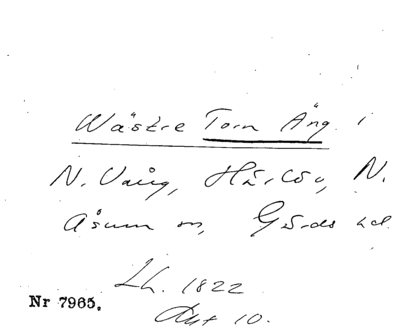 Wästre Torn Äng i
N. Vång, Härlöv, N.
Åsum sn, Gärds hd.
Lh. 1822
Akt 10.
Nr 7965.